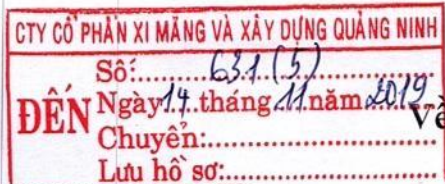 CTY CỔ PHẦN XI MĂNG VÀ XÂY DỰNG QUẢNG NINH
Số:.......631.(5)..................
ĐẾN Ngày14..tháng 11.năm 2019
Về
Chuyển:................................
Lưu hồ sơ:..............................